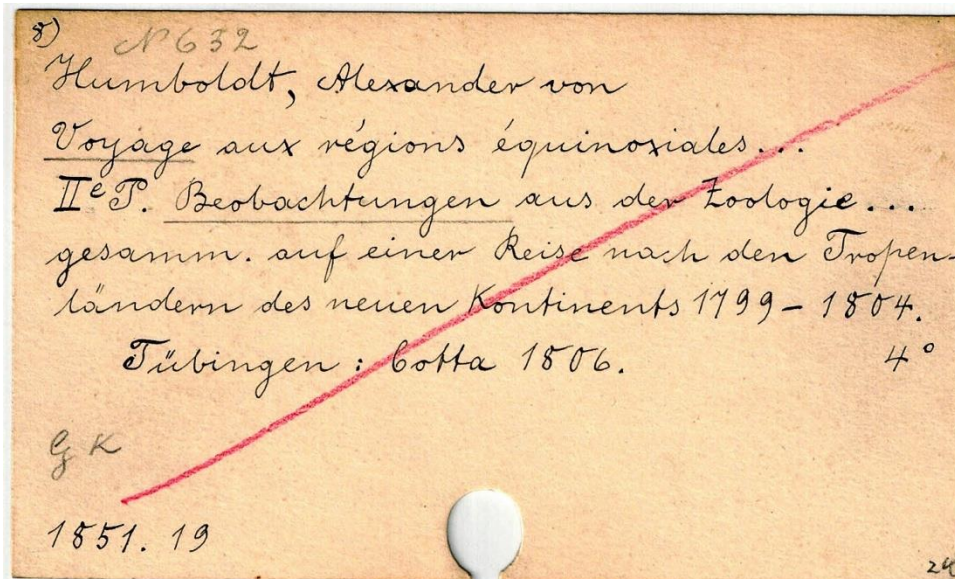 8)
N 632
Humboldt, Alexander von
Voyage aux régions équinoxiales...
IIe P. Beobachtungen aus der Zoologie...
gesamm. auf einer Reise nach den Tropen-
ländern des neuen Kontinents 1799 – 1804.
Tübingen : Cotta 1806. 4°
G K
1851. 19